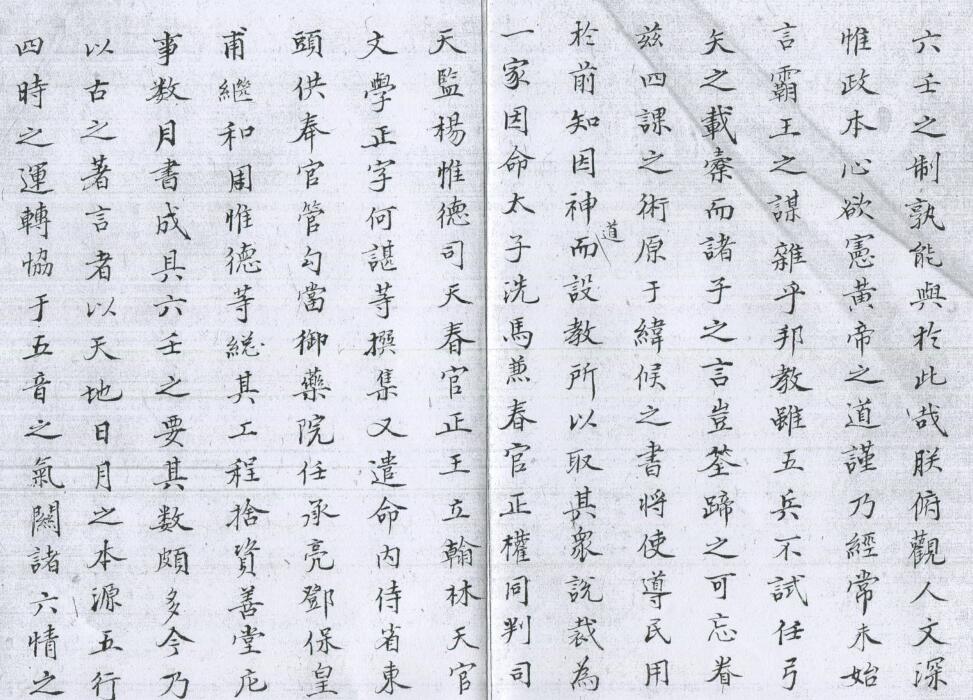 六壬之制孰能與於此哉朕俯觀人文深
惟政本心欲憲黃帝之道謹乃經常未始
言霸王之謀雜乎邦教雖五兵不試任弓
矢之載櫜而諸子之言豈筌蹄之可忘眷
玆四課之術原于緯候之書將使導民用
於前知因神道而設教所以取其眾說裁為
一家因命太子洗馬兼春官正權同判司
天監楊惟德司天春官正王立翰林天官
文學正字何諶等撰集又遣命內侍省東
頭供奉官管勾當御藥院任承亮鄧保皇
甫繼和周惟德等緫其工程捨資善堂庀
事数月書成具六壬之要其数頗多今乃
以古之著言者以天地日月之本源五行
四時之運轉協于五音之氣闕諸六情之